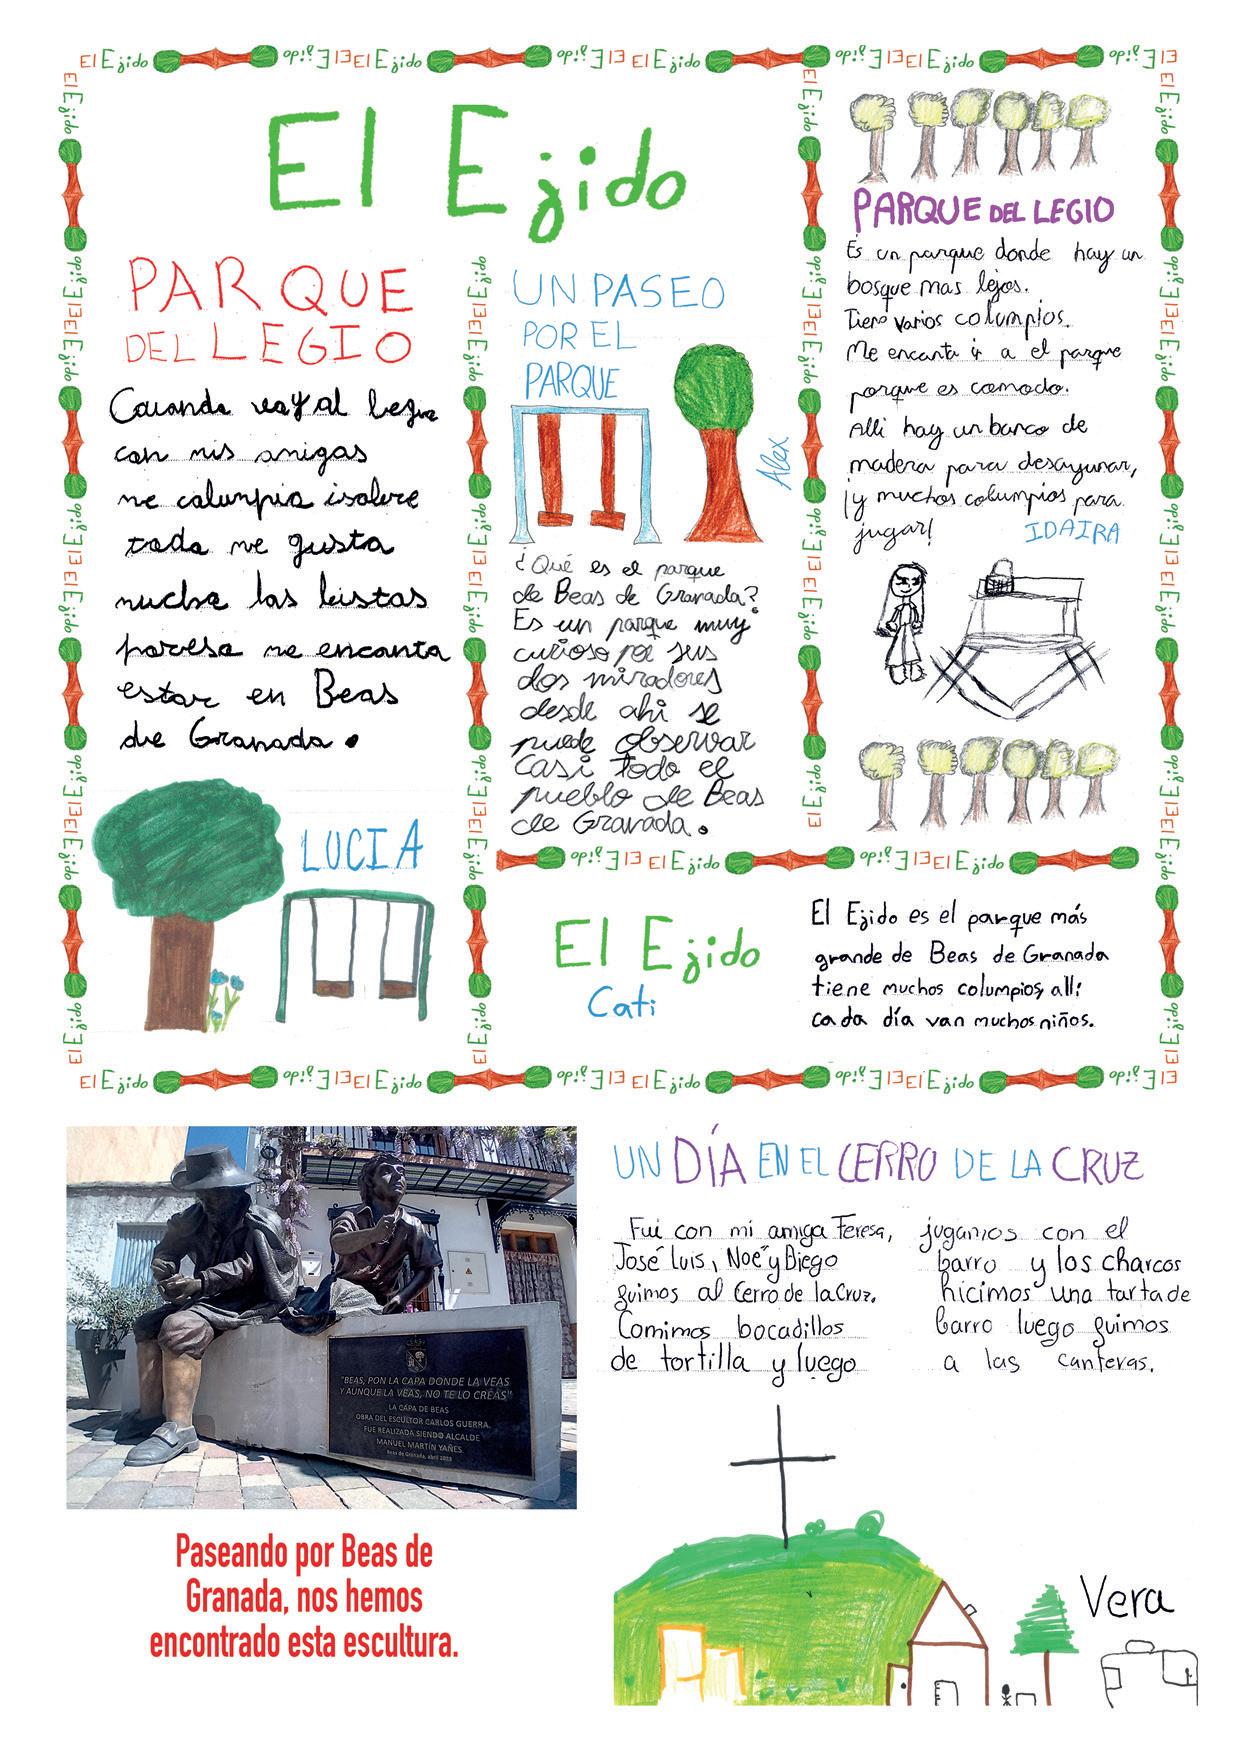 El Ejido
PARQUE
DEL LEGIO
Cuando voy al legio
con mis amigas
me columpio i sobre
todo me gusta
mucho las bistas
por eso me encanta
estar en Beas
de Granada.
LUCIA
UN PASEO
POR EL
PARQUE
Alex
¿Qué es el parque
de Beas de Granada?
Es un parque muy
curioso por sus
dos miradores
desde ahi se
puede observar
casi todo el
pueblo de Beas
de Granada.
PARQUE DEL LEGIO
Es un parque donde hay un
bosque mas lejos.
Tiene varios columpios.
Me encanta ir a el parque
porque es comodo.
Alli hay un banco de
madera para desayunar,
¡y muchos columpios para
jugar!
IDAIRA
El Ejido
Cati
El Ejido es el parque más
grande de Beas de Granada
tiene muchos columpios, alli
cada día van muchos niños.
"BEAS, PON LA CAPA DONDE LA VEAS
Y AUNQUE LA VEAS, NO TE LO CREAS"
LA CAPA DE BEAS
OBRA DEL ESCULTOR CARLOS GUERRA.
FUE REALIZADA SIENDO ALCALDE
MANUEL MARTÍN YAÑES.
Beas de Granada, abril 2023
Paseando por Beas de
Granada, nos hemos
encontrado esta escultura.
UN DÍA EN EL CERRO DE LA CRUZ
Fui con mi amiga Teresa,
José Luis, Noé y Diego
guimos al Cerro de la Cruz.
Comimos bocadillos
de tortilla y luego
jugamos con el
barro y los charcos
hicimos una tarta de
barro luego guimos
a las canteras.
Vera